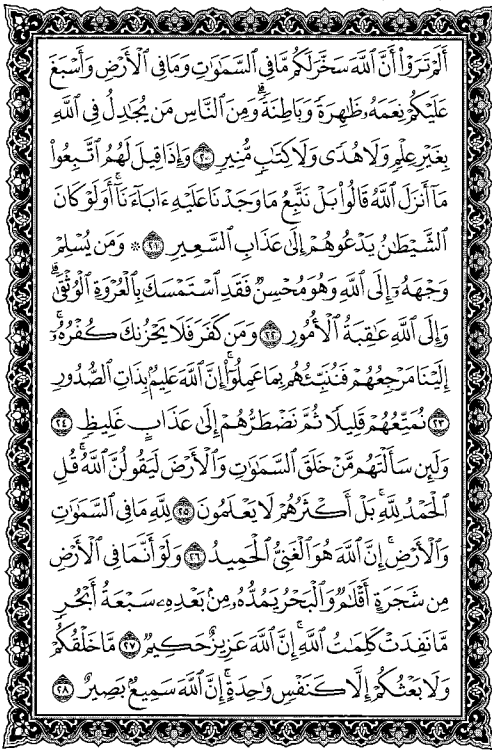 أَلَمْ تَرَوْا۟ أَنَّ ٱللَّهَ سَخَّرَ لَكُم مَّا فِى ٱلسَّمَٰوَٰتِ وَمَا فِى ٱلْأَرْضِ وَأَسْبَغَ
عَلَيْكُمْ نِعَمَهُۥ ظَٰهِرَةً وَبَاطِنَةً ۗ وَمِنَ ٱلنَّاسِ مَن يُجَٰدِلُ فِى ٱللَّهِ
بِغَيْرِ عِلْمٍ وَلَا هُدًى وَلَا كِتَٰبٍ مُّنِيرٍ ٢٠ وَإِذَا قِيلَ لَهُمُ ٱتَّبِعُوا۟
مَآ أَنزَلَ ٱللَّهُ قَالُوا۟ بَلْ نَتَّبِعُ مَا وَجَدْنَا عَلَيْهِ ءَابَآءَنَآ ۚ أَوَلَوْ كَانَ
ٱلشَّيْطَٰنُ يَدْعُوهُمْ إِلَىٰ عَذَابِ ٱلسَّعِيرِ ٢١ ۞ وَمَن يُسْلِمْ
وَجْهَهُۥٓ إِلَى ٱللَّهِ وَهُوَ مُحْسِنٌ فَقَدِ ٱسْتَمْسَكَ بِٱلْعُرْوَةِ ٱلْوُثْقَىٰ ۗ
وَإِلَى ٱللَّهِ عَٰقِبَةُ ٱلْأُمُورِ ٢٢ وَمَن كَفَرَ فَلَا يَحْزُنكَ كُفْرُهُۥٓ ۚ
إِلَيْنَا مَرْجِعُهُمْ فَنُنَبِّئُهُم بِمَا عَمِلُوٓا۟ ۚ إِنَّ ٱللَّهَ عَلِيمٌۢ بِذَاتِ ٱلصُّدُورِ
٢٣ نُمَتِّعُهُمْ قَلِيلًا ثُمَّ نَضْطَرُّهُمْ إِلَىٰ عَذَابٍ غَلِيظٍ ٢٤
وَلَئِن سَأَلْتَهُم مَّنْ خَلَقَ ٱلسَّمَٰوَٰتِ وَٱلْأَرْضَ لَيَقُولُنَّ ٱللَّهُ ۚ قُلِ
ٱلْحَمْدُ لِلَّهِ ۚ بَلْ أَكْثَرُهُمْ لَا يَعْلَمُونَ ٢٥ لِلَّهِ مَا فِى ٱلسَّمَٰوَٰتِ
وَٱلْأَرْضِ ۚ إِنَّ ٱللَّهَ هُوَ ٱلْغَنِىُّ ٱلْحَمِيدُ ٢٦ وَلَوْ أَنَّمَا فِى ٱلْأَرْضِ
مِن شَجَرَةٍ أَقْلَٰمٌ وَٱلْبَحْرُ يَمُدُّهُۥ مِنۢ بَعْدِهِۦ سَبْعَةُ أَبْحُرٍ
مَّا نَفِدَتْ كَلِمَٰتُ ٱللَّهِ ۗ إِنَّ ٱللَّهَ عَزِيزٌ حَكِيمٌ ٢٧ مَّا خَلْقُكُمْ
وَلَا بَعْثُكُمْ إِلَّا كَنَفْسٍ وَٰحِدَةٍ ۗ إِنَّ ٱللَّهَ سَمِيعٌۢ بَصِيرٌ ٢٨